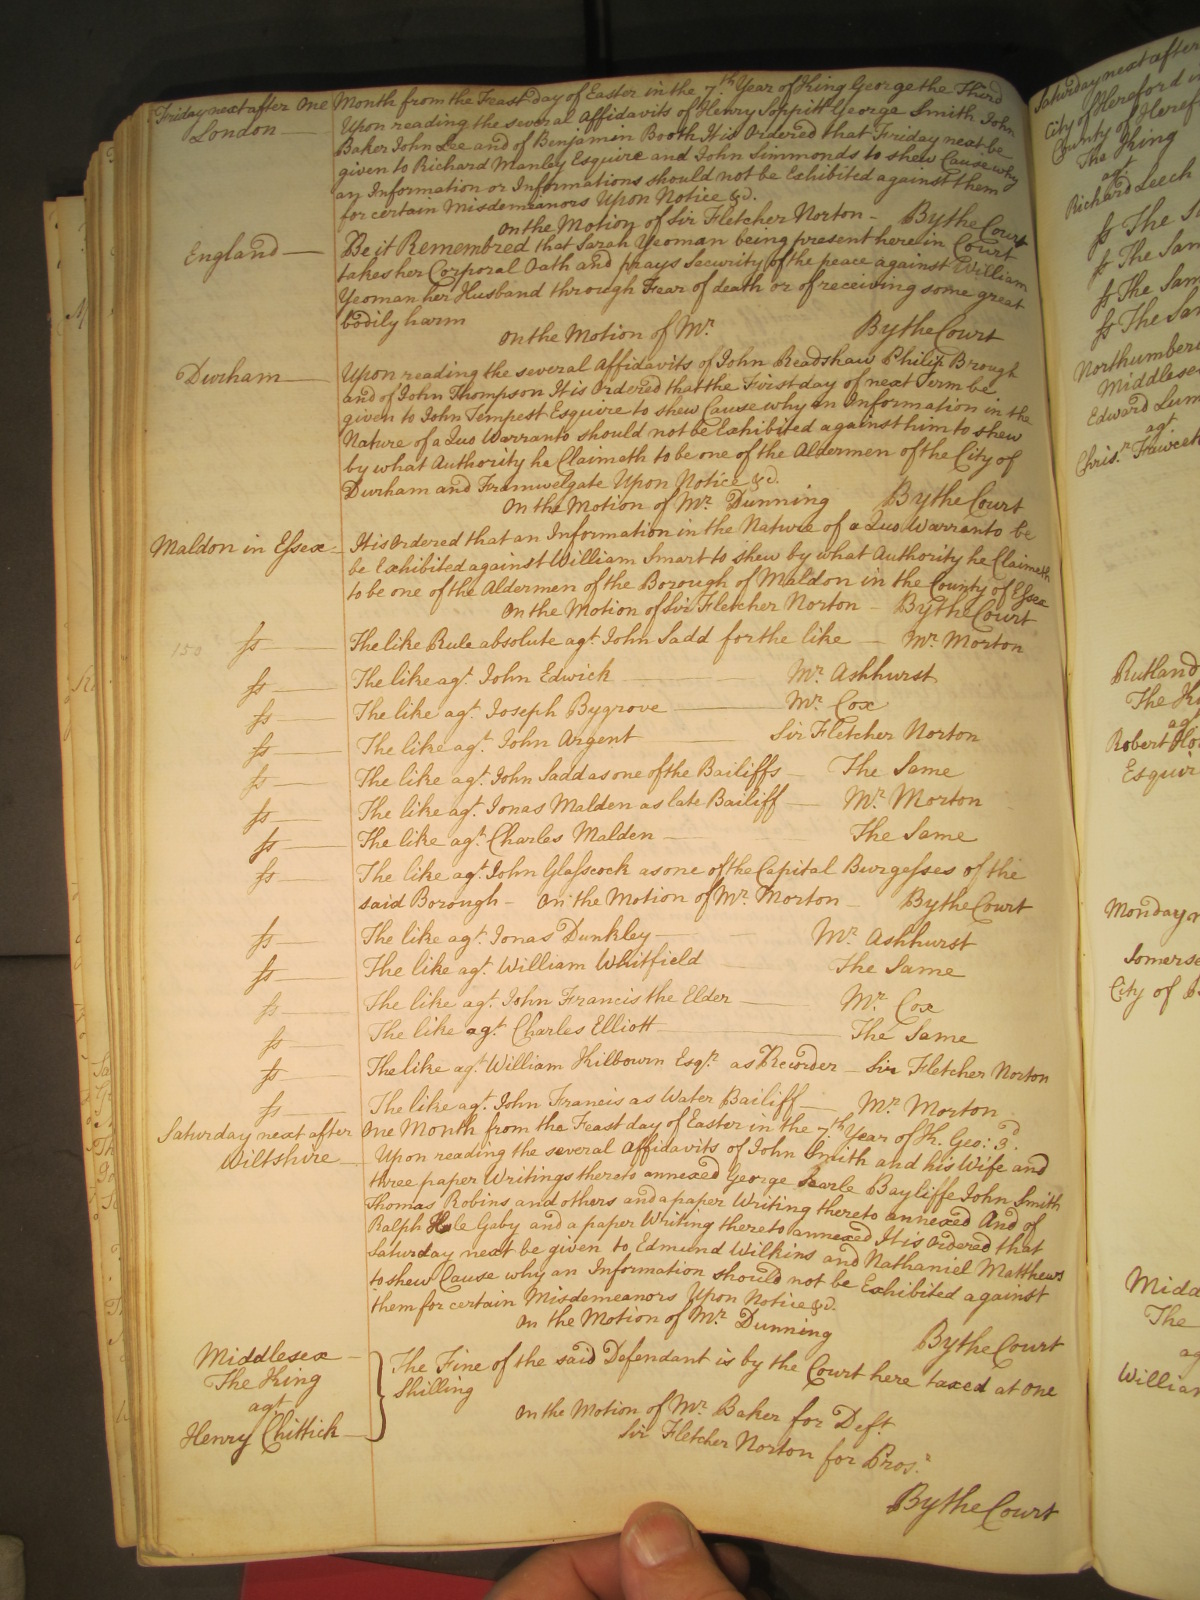 Friday next after One Month from the Feast Day of Easter in the 7.th Year of King George the Third
London — Upon reading the several Affidavits of Henry Soppitt George Smith John
Baker John Lee and of Benjamin Booth It is Ordered that Friday next be
given to Richard Manley Esquire and John Simmonds to shew Cause why
an Information or Informations should not be Exhibited against them
for certain Misdemeanors Upon Notice &c.
On the Motion of Sir Fletcher Norton — By the Court
England — Be it Remembred that Sarah Yeoman being present here in Court
takes her Corporal Oath and prays Security of the peace against William
Yeoman her Husband through Fear of death or of receiving some great
bodily harm
On the Motion of Mr. By the Court
Durham — Upon reading the several Affidavits of John Readshaw Philip Brough
and of John Thompson It is Ordered that the First day of next Term be
given to John Tempest Esquire to shew Cause why an Information in the
Nature of a Quo Warranto should not be Exhibited against him to shew
by what Authority he Claimeth to be one of the Aldermen of the City of
Durham and Framwelgate Upon Notice &c.
On the Motion of Mr. Dunning By the Court
Maldon in Essex — It is Ordered that an Information in the Nature of a Quo Warranto be
be Exhibited against William Smart to shew by what Authority he Claimeth
to be one of the Aldermen of the Borough of Maldon in the County of Essex
On the Motion of Sir Fletcher Norton — By the Court
150 ss — The like Rule absolute agt. John Sadd for the like — Mr. Morton
ss — The like agt. John Edwick Mr. Ashhurst
ss — The like agt. Joseph Bygrove — Mr. Cox
ss — The like agt. John Argent Sir Fletcher Norton
ss — The like agt. John Sadd as one of the Bailiffs — The Same
ss — The like agt. Jonas Malden as late Bailiff — Mr. Morton
ss — The like agt. Charles Malden — The Same
ss — The like agt. John Glasscock as one of the Capital Burgesses of the
said Borough — On the Motion of Mr. Morton — By the Court
ss — The like agt. Jonas Dunkley — Mr. Ashhurst
ss — The like agt. William Whitfield The Same
ss — The like agt. John Francis the Elder — Mr. Cox
ss — The like agt. Charles Elliott — The Same
ss — The like agt. William Kilbourn Esqr. as Recorder — Sir Fletcher Norton
ss — The like agt. John Francis as Water Bailiff — Mr. Morton
Saturday next after One Month from the Feast day of Easter in the 7.th Year of K. Geo: 3.d
Wiltshire — Upon reading the several Affidavits of John Smith and his Wife and
three paper Writings thereto annexed George Searle Bayliffe John Smith
Thomas Robins and others and a paper Writing thereto annexed And of
Ralph Hale Gaby and a paper Writing thereto annexed It is Ordered that
Saturday next be given to Edmund Wilkins and Nathaniel Matthews
to shew Cause why an Information should not be Exhibited against
them for certain Misdemeanors Upon Notice &c.
On the Motion of Mr. Dunning By the Court
Middlesex —
The King
agt
Henry Chittick —
The Fine of the said Defendant is by the Court here taxed at One
Shilling
On the Motion of Mr. Baker for Deft.
Sir Fletcher Norton for Pros.r
By the Court
Saturday next after
City of Hereford
County of
The King
agt
Richard Leech
ss The
ss The
ss The
ss The
Middlesex
Edward
agt.
Chris.r Fawcett
Rutland
The
agt
Robert
Monday
City of
The
ag